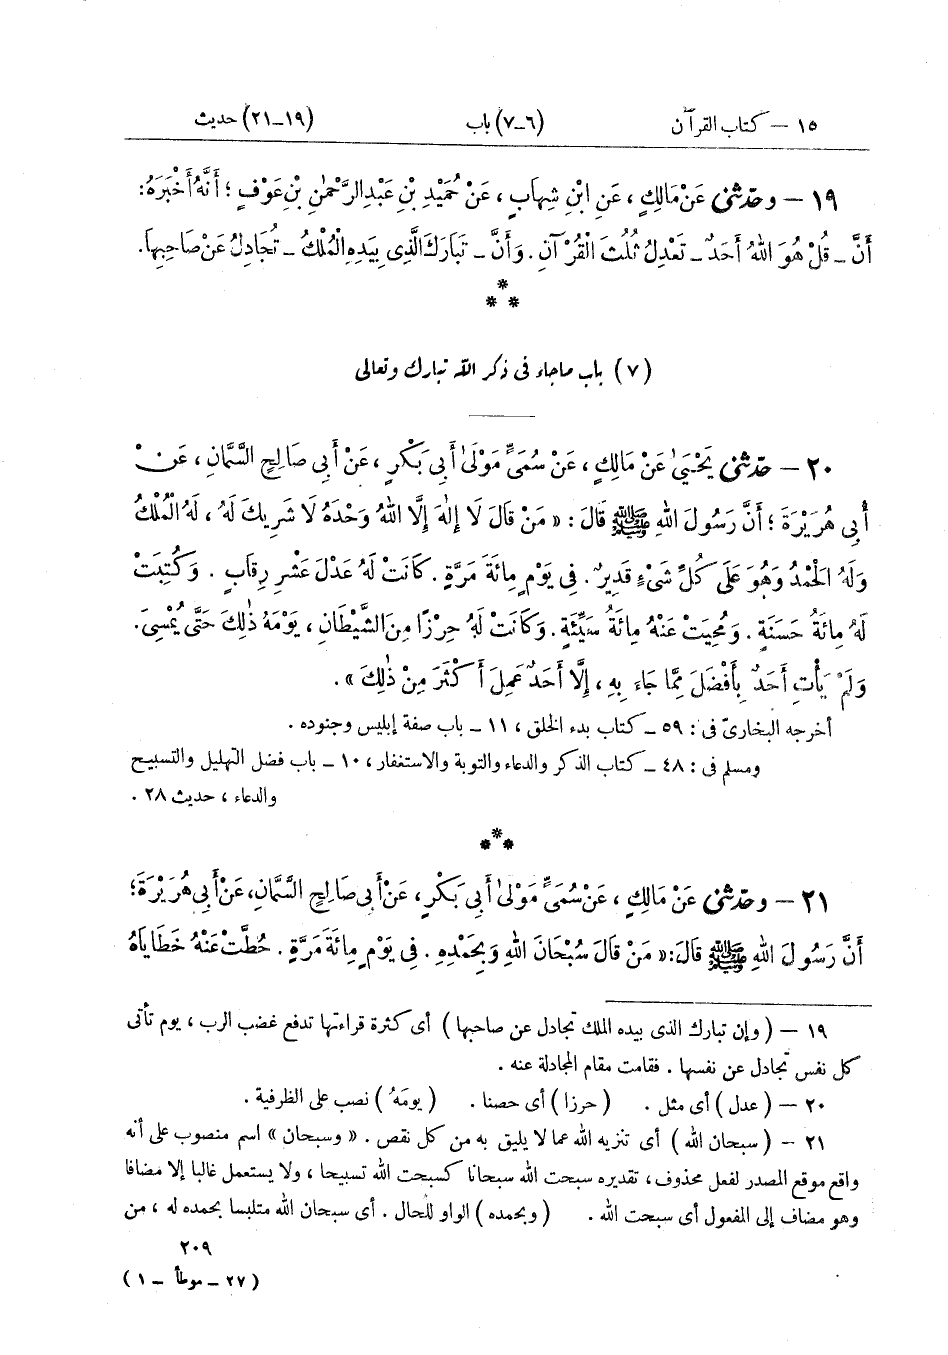 ١٥ — كتاب القرآن (٦ـ٧) باب (١٩ـ٢١) حديث
١٩ — وحدثنى عَنْ مَالِكٍ ، عَنِ ابْنِ شِهَابٍ ، عَنْ حُمَيْدِ بْنِ عَبْدِ الرَّحْمٰنِ بْنِ عَوْفٍ ؛ أَنَّهُ أَخْبَرَهُ:
أَنَّ ـ قُلْ هُوَ اللهُ أَحَدٌ ـ تَعْدِلُ ثُلُثَ الْقُرْآنِ. وَأَنَّ ـ تَبَارَكَ الَّذِى بِيَدِهِ الْمُلْكُ ـ تُجَادِلُ عَنْ صَاحِبِهَا.
*
* *
(٧) باب ماجاء فى ذكر الله تبارك وتعالى
٢٠ — حدثنى يَحْيَىٰ عَنْ مَالِكٍ ، عَنْ سُمَىٍّ مَوْلَىٰ أَبِى بَكْرٍ ، عَنْ أَبِى صَالِحٍ السَّمَّانِ ، عَنْ
أَبِى هُرَيْرَةَ ؛ أَنَّ رَسُولَ اللهِ ﷺ قَالَ : « مَنْ قَالَ لَا إِلٰهَ إِلَّا اللهُ وَحْدَهُ لَا شَرِيكَ لَهُ ، لَهُ الْمُلْكُ
وَلَهُ الْحَمْدُ وَهُوَ عَلَى كُلِّ شَىْءٍ قَدِيرٌ . فِى يَوْمٍ مِائَةَ مَرَّةٍ . كَانَتْ لَهُ عَدْلَ عَشْرِ رِقَابٍ . وَكُتِبَتْ
لَهُ مِائَةُ حَسَنَةٍ . وَمُحِيَتْ عَنْهُ مِائَةُ سَيِّئَةٍ . وَكَانَتْ لَهُ حِرْزًا مِنَ الشَّيْطَانِ ، يَوْمَهُ ذٰلِكَ حَتَّى يُمْسِىَ.
وَلَمْ يَأْتِ أَحَدٌ بِأَفْضَلَ مِمَّا جَاءَ بِهِ ، إِلَّا أَحَدٌ عَمِلَ أَكْثَرَ مِنْ ذٰلِكَ » .
أخرجه البخارىّ فى : ٥٩ ـ كتاب بدء الخلق ، ١١ ـ باب صفة إبليس وجنوده .
ومسلم فى : ٤٨ ـ كتاب الذكر والدعاء والتوبة والاستغفار ، ١٠ ـ باب فضل التهليل والتسبيح
والدعاء ، حديث ٢٨ .
*
* *
٢١ — وحدثنى عَنْ مَالِكٍ ، عَنْ سُمَىٍّ مَوْلَىٰ أَبِى بَكْرٍ ، عَنْ أَبِى صَالِحٍ السَّمَّانِ، عَنْ أَبِى هُرَيْرَةَ؛
أَنَّ رَسُولَ اللهِ ﷺ قَالَ: « مَنْ قَالَ سُبْحَانَ اللهِ وَبِحَمْدِهِ . فِى يَوْمٍ مِائَةَ مَرَّةٍ . حُطَّتْ عَنْهُ خَطَايَاهُ
١٩ — ( وإن تبارك الذى بيده الملك تجادل عن صاحبها ) أى كثرة قراءتها تدفع غضب الرب ، يوم تأتى
كل نفس تجادل عن نفسها . فقامت مقام المجادلة عنه .
٢٠ — (عدل ) أى مثل . ( حرزا ) أى حصنا . ( يومَهُ ) نصب على الظرفية .
٢١ — ( سبحان الله ) أى تنزيه الله عما لا يليق به من كل نقص . « وسبحان » اسم منصوب على أنه
واقع موقع المصدر لفعل محذوف، تقديره سبحت الله سبحانا كسبحت الله تسبيحا ، ولا يستعمل غالبا إلا مضافا
وهو مضاف إلى المفعول أى سبحت الله . ( وبحمده ) الواو للحال . أى سبحان الله متلبسا بحمده له ، من
٢٠٩
(٢٧ ـ موطأ ـ ١)